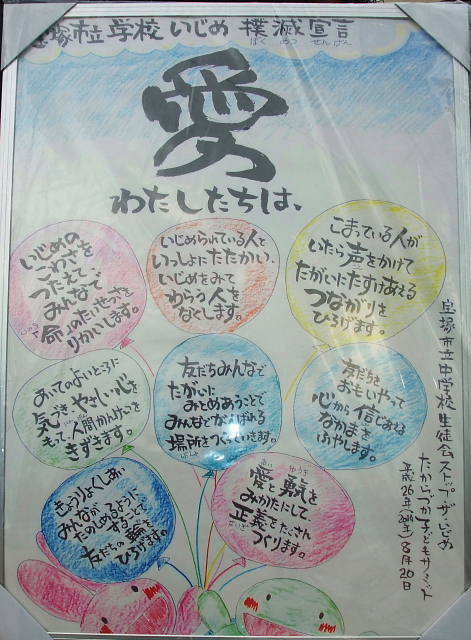 宝塚市立学校 いじめ 撲滅宣言
ぼく めつ せんげん
愛
わたしたちは、
いじめの
こわさを
つたえて、
みんなで
命のたいせつさを
りかいします。
いじめられている人と
いっしょにたたかい、
いじめをみて
わらう人を
なくします。
こまっている人が
いたら声をかけて
たがいにたすけあえる
つながりを
ひろげます。
あいてのよいところに
気づきやさしい心を
もって、人間かんけいを
きずきます。
友だちみんなで
たがいに
みとめあうことで
みんなががんばれる
場所をつくっていきます。
友だちを
おもいやって
心から信じあえる
なかまを
ふやします。
きょうりょくしあい
みんなが
たのしめるように
することで
友だちの輪を
ひろげます。
あい ゆうき
愛と勇気を
みかたにして
正義をたくさん
せいぎ
つくります。
宝塚市立中学校生徒会ストップ・ザ・いじめ
たからづか子どもサミット
平成26年(2014年)8月20日